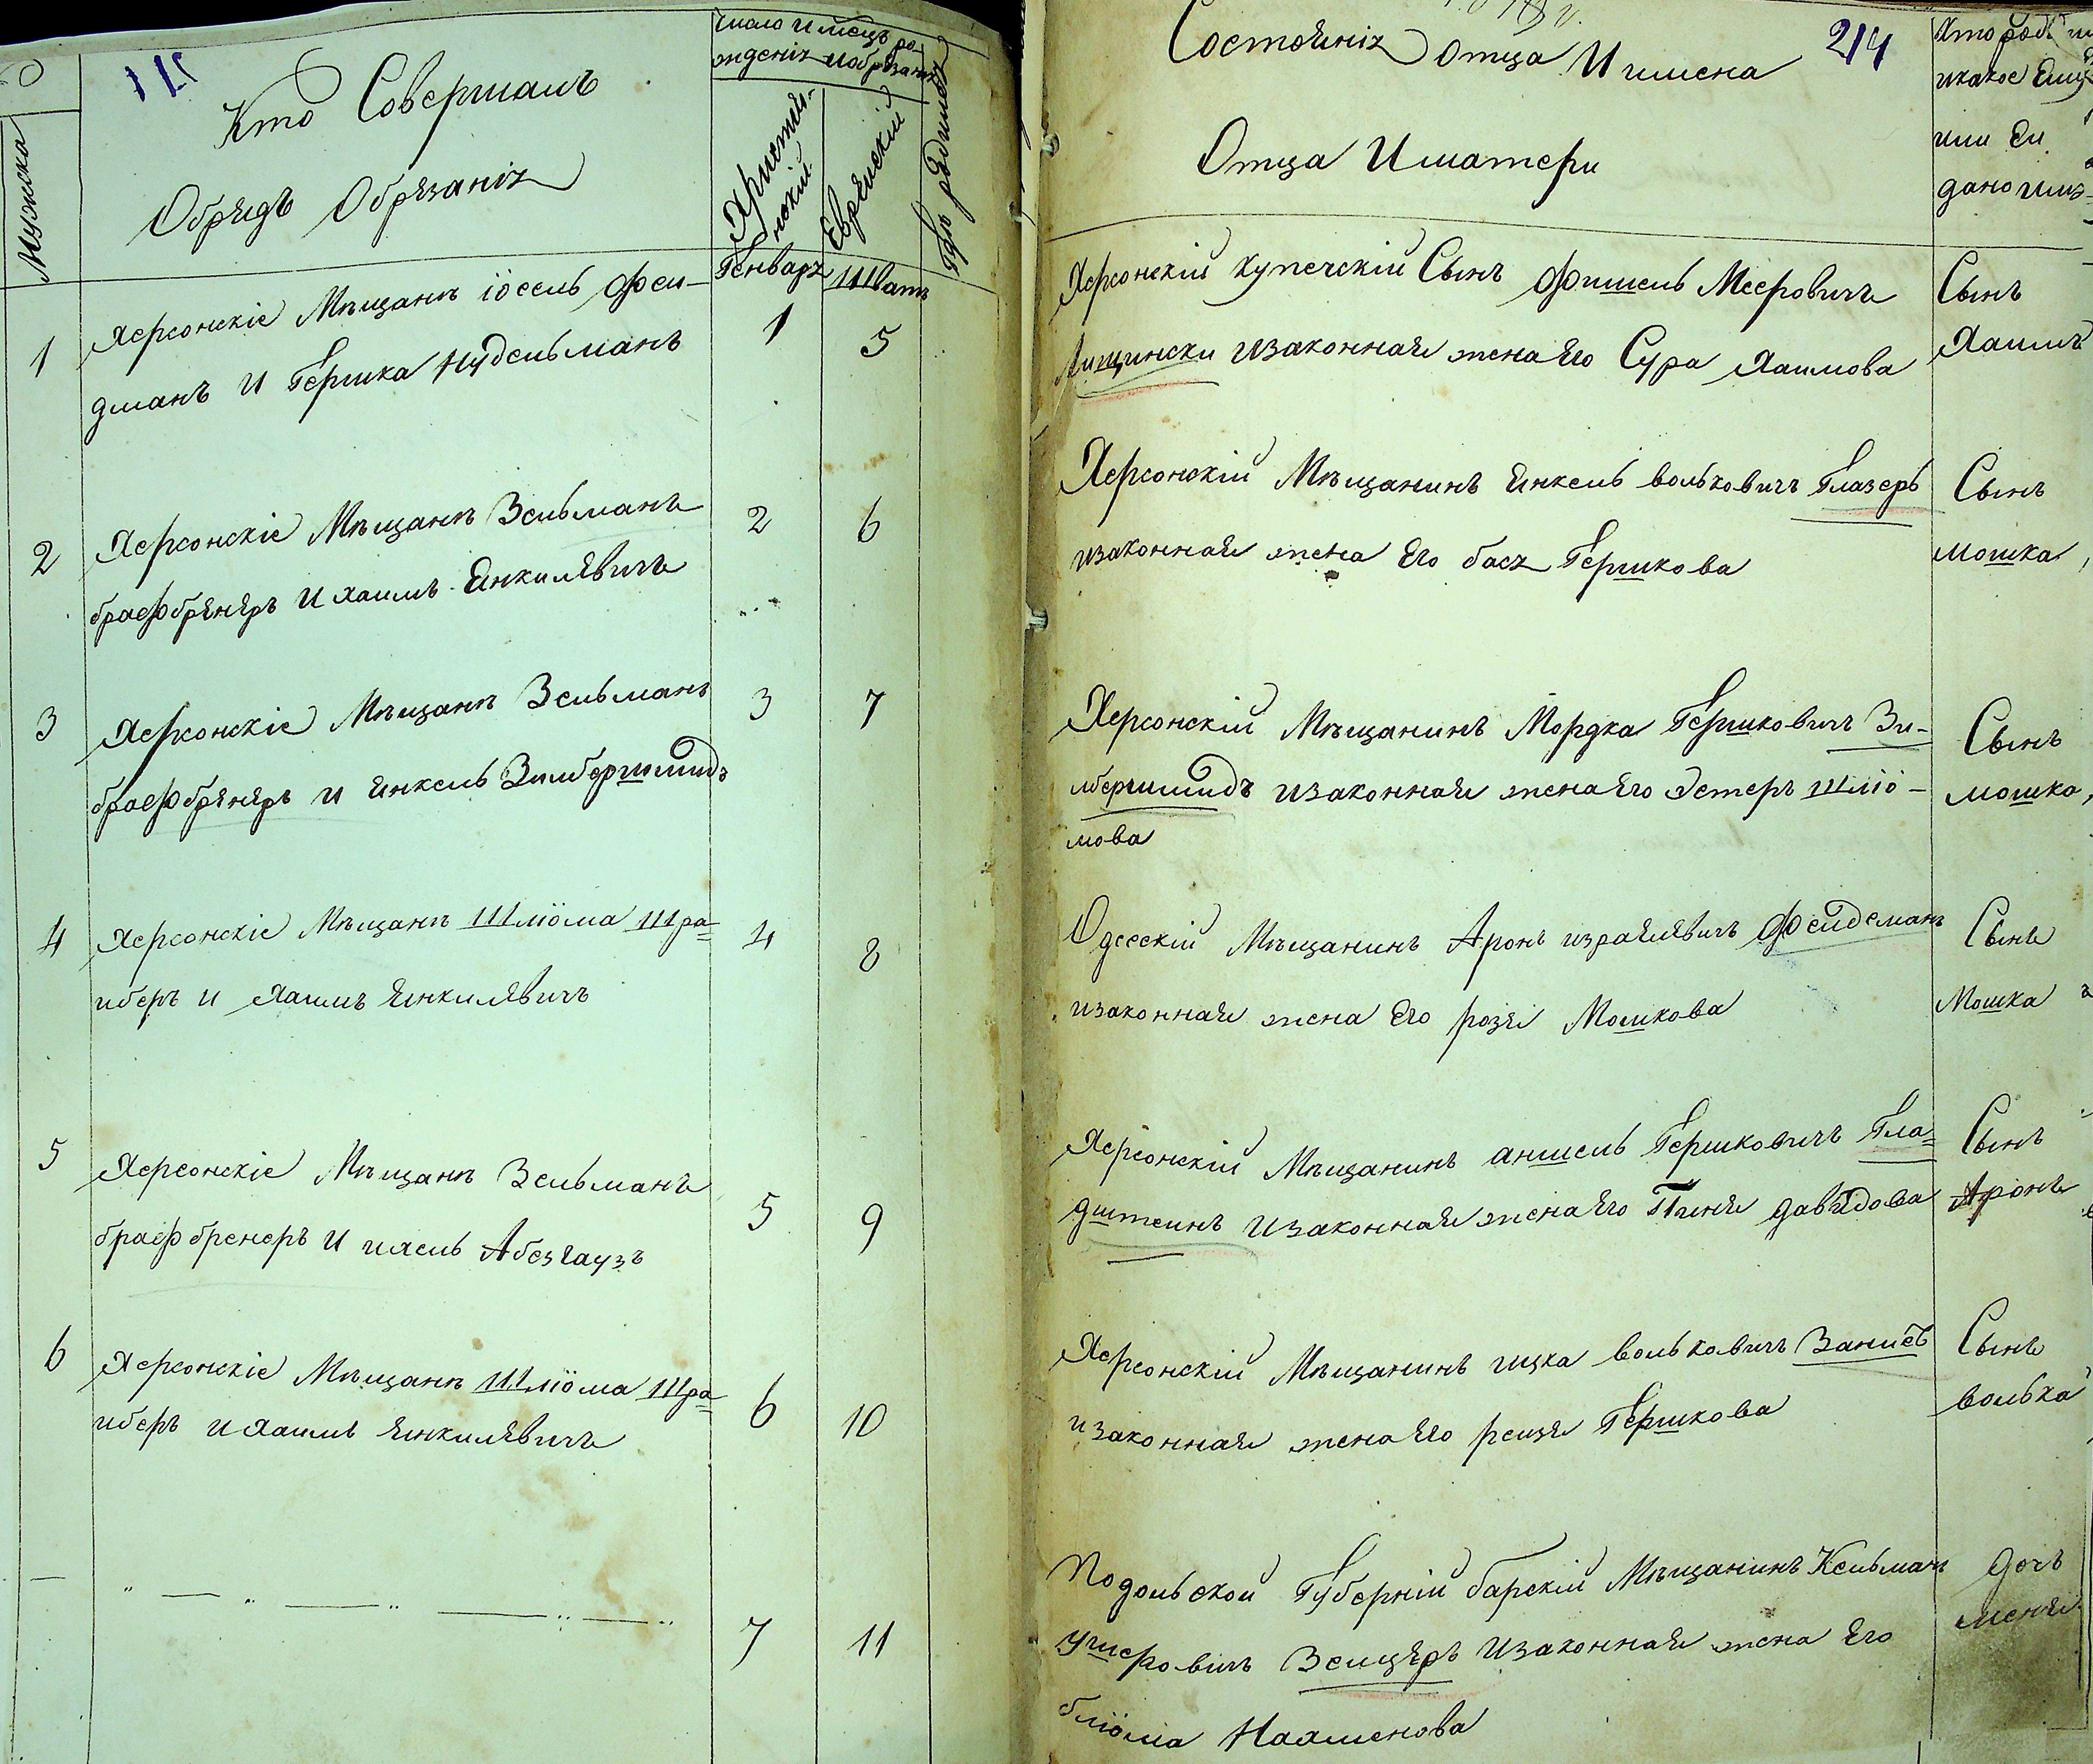 Мужиска
Кто Совершалъ
Обрядъ Обрѣзанія
Число и месецъ ро-
жденія и обрѣзанія
Христiян-
ский
Еврейский
Где родился
Генваря
Шватъ
1
Херсонскіе Мѣщане іосель Фри-
дманъ и Гершка Нудельманъ
1
5
2
Херсонскіе Мѣщане Зельманъ
брасфбренеръ и Хаимъ Янкилевичъ
2
6
3
Херсонскіе Мѣщане Зельманъ
брасфбренеръ и Янкель Зильбершмидъ
3
7
4
Херсонскіе Мѣщане Шліома Шра-
иберъ и Хаимъ Янкилевичъ
4
8
5
Херсонскіе Мѣщане Зельманъ
брасфбренеръ и ихель Абезгаузъ
5
9
6
Херсонскіе Мѣщане Шліома Шра-
иберъ и Хаимъ Янкилевичъ
6
10
7
11
Состоянія Отца И имена
214
Отца И матери
Кто род
и какое Ему
или Ей
дано имя
Херсонскій купеческій Сынъ Фишель Мееровичъ
Лищински и законная жена Его Сура Хаимова
Сынъ
Хаимъ
Херсонскій Мѣщанинъ Янкель Вольковичъ Глазеръ
и законная жена Его бася Гершкова
Сынъ
Мошка
Херсонскій Мѣщанинъ Мордка Гершковичъ Зи-
лбершмидъ и законная жена Его Эстеръ Шліо-
мова
Сынъ
Мошка
Одесскій Мѣщанинъ Аронъ израилевичъ Фейдеманъ
и законная жена Его розя Мошкова
Сынъ
Мошка
Херсонскій Мѣщанинъ аншель Гершковичъ Гла-
дштеинъ и законная жена Его Пиня давидова
Сынъ
Аронъ
Херсонскій Мѣщанинъ ицка вольковичъ Заниев
и законная жена Его реизя Гершкова
Сынъ
волька
Подольской Губерній барскій Мѣщанинъ Кельман
Ушеровичъ Зельцеръ и законная жена Его
бліома Нахменова
дочь
меня